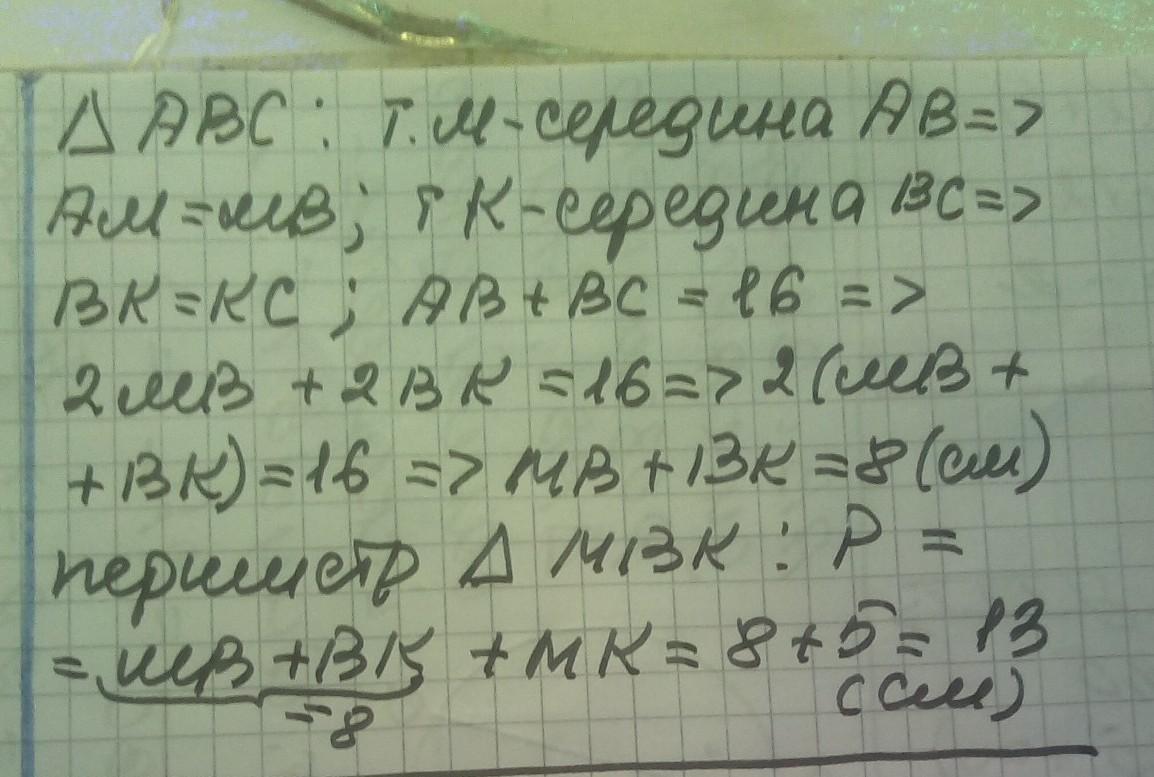 Δ ABC : т.М-середина AB=>
AM=MB; т K-середина BC=>
BK=KC ; AB+BC =16 =>
2MB +2BK =16=>2(MB+
+BK)=16 =>MB+BK=8(см)
периметр Δ MBK : P =
=MB+BK +MK=8+5= 13
=8 (см)